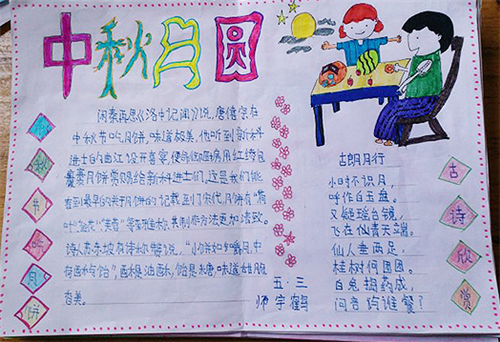 中秋月圆
中
秋
节
吃
月
饼
闲来再思《洛中记闻》说,唐僖宗在
中秋节吃月饼,味道极美,他听到新科
进士在曲江设开喜宴,便命御厨房用红绫包
裹月饼赏赐给新科进士们,这是我们能
看到最早的关于月饼的记载到了宋代,月饼有"荷
叶""金花""芙蓉"等雅称,其制作方法更加精致。
诗人苏东坡有诗称赞说,"小饼如嚼月,中
有酥与饴",酥是油酥,饴是糖,味道
香美。
五·三
师宇鹤
古朗月行
小时不识月,
呼作白玉盘。
又疑瑶台镜,
飞在仙青天端。
仙人垂两足,
桂树何团团。
白兔捣药成,
问言与谁餐?
古
诗
欣
赏